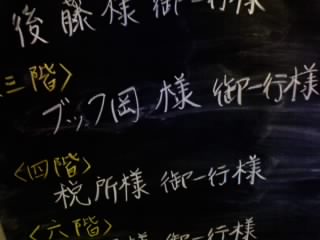 後藤様 御一行様
〈三階〉
ブッフ岡 様 御一行様
〈四階〉
税所様 御一行様
〈六階〉
様 御一行様